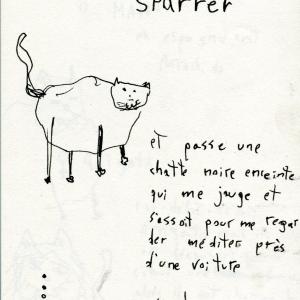 Sparrer
et passe une
chatte noire enceinte
qui me jauge et
s'assoit pour me regar
der méditer près
d'une voiture